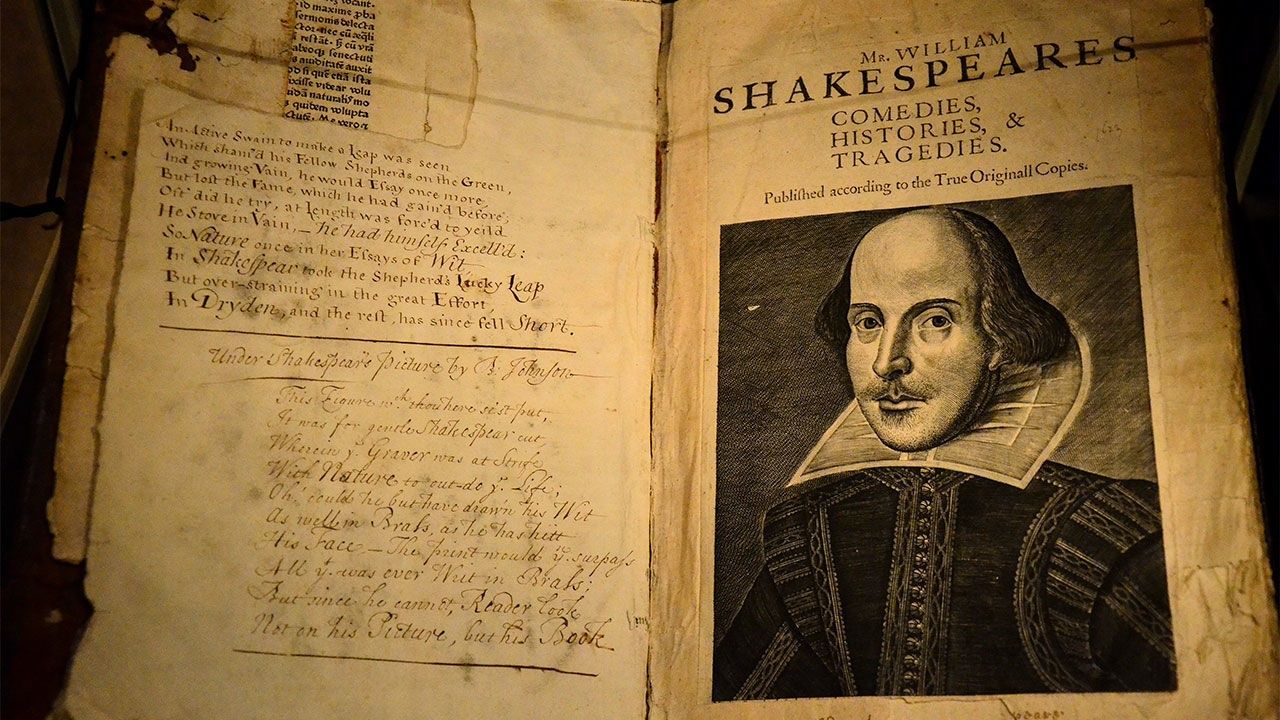 id maxime ꝓba
sermonis delecta
s auiditatē auxit
xisse videar volu
s quidem volupta
An Active Swain to make a Leap was seen
Which sham'd his Fellow Shepherds on the Green,
And growing Vain, he would Essay once more,
But lost the Fame, which he had gain'd before;
Oft did he try, at Length was forc'd to yeild
He Stove in Vain, — he had himself Excell'd:
So Nature once in her Essays of Wit
In Shakespear took the Shepherd's Lucky Leap
But over-straining in the great Effort,
In Dryden, and the rest, has since fell Short.
Under Shakespear's Picture by B: Johnson
This Figure wch. thou here se'st put,
It was for gentle Shakespear cut,
Wherein ye. Graver was at Strife
With Nature to out-do ye. Life;
Oh, could he but have drawn his Wit
As well in Brass, as he has hitt
His Face — The print would yn. surpass
All yt. was ever Writ in Brass;
But since he cannot, Reader look
Not on his Picture, but his Book
MR. WILLIAM
SHAKESPEARES
COMEDIES,
HISTORIES, &
TRAGEDIES.
Published according to the True Originall Copies.
1623